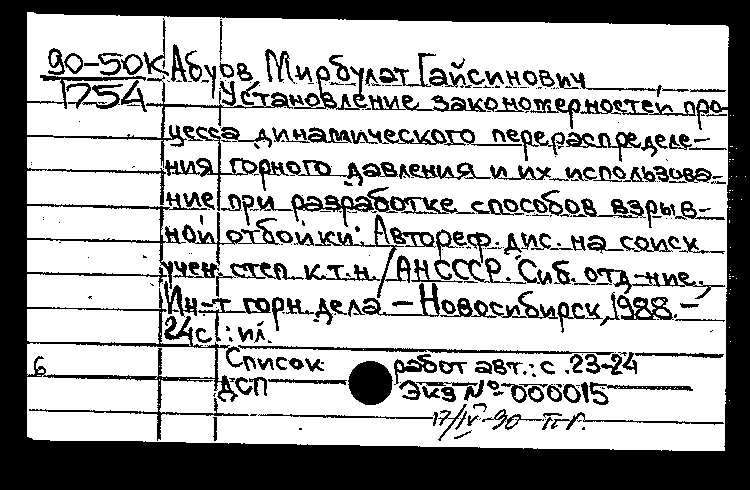 90-50К Абуов, Мирбулат Гайсинович
1754 Установление закономерностей про-
цесса динамического перераспределе-
ния горного давления и их использова-
ние при разработке способов взрыв-
ной отбойки: Автореф. дис. на соиск.
учен. степ. к.т.н. / АН СССР. Сиб. отд-ние.,
Ин-т горн. дела. – Новосибирск, 1988. –
24с.: ил.
Список работ авт.: с. 23-24
6
ДСП Экз № 000015
17/IV-90 П Г.